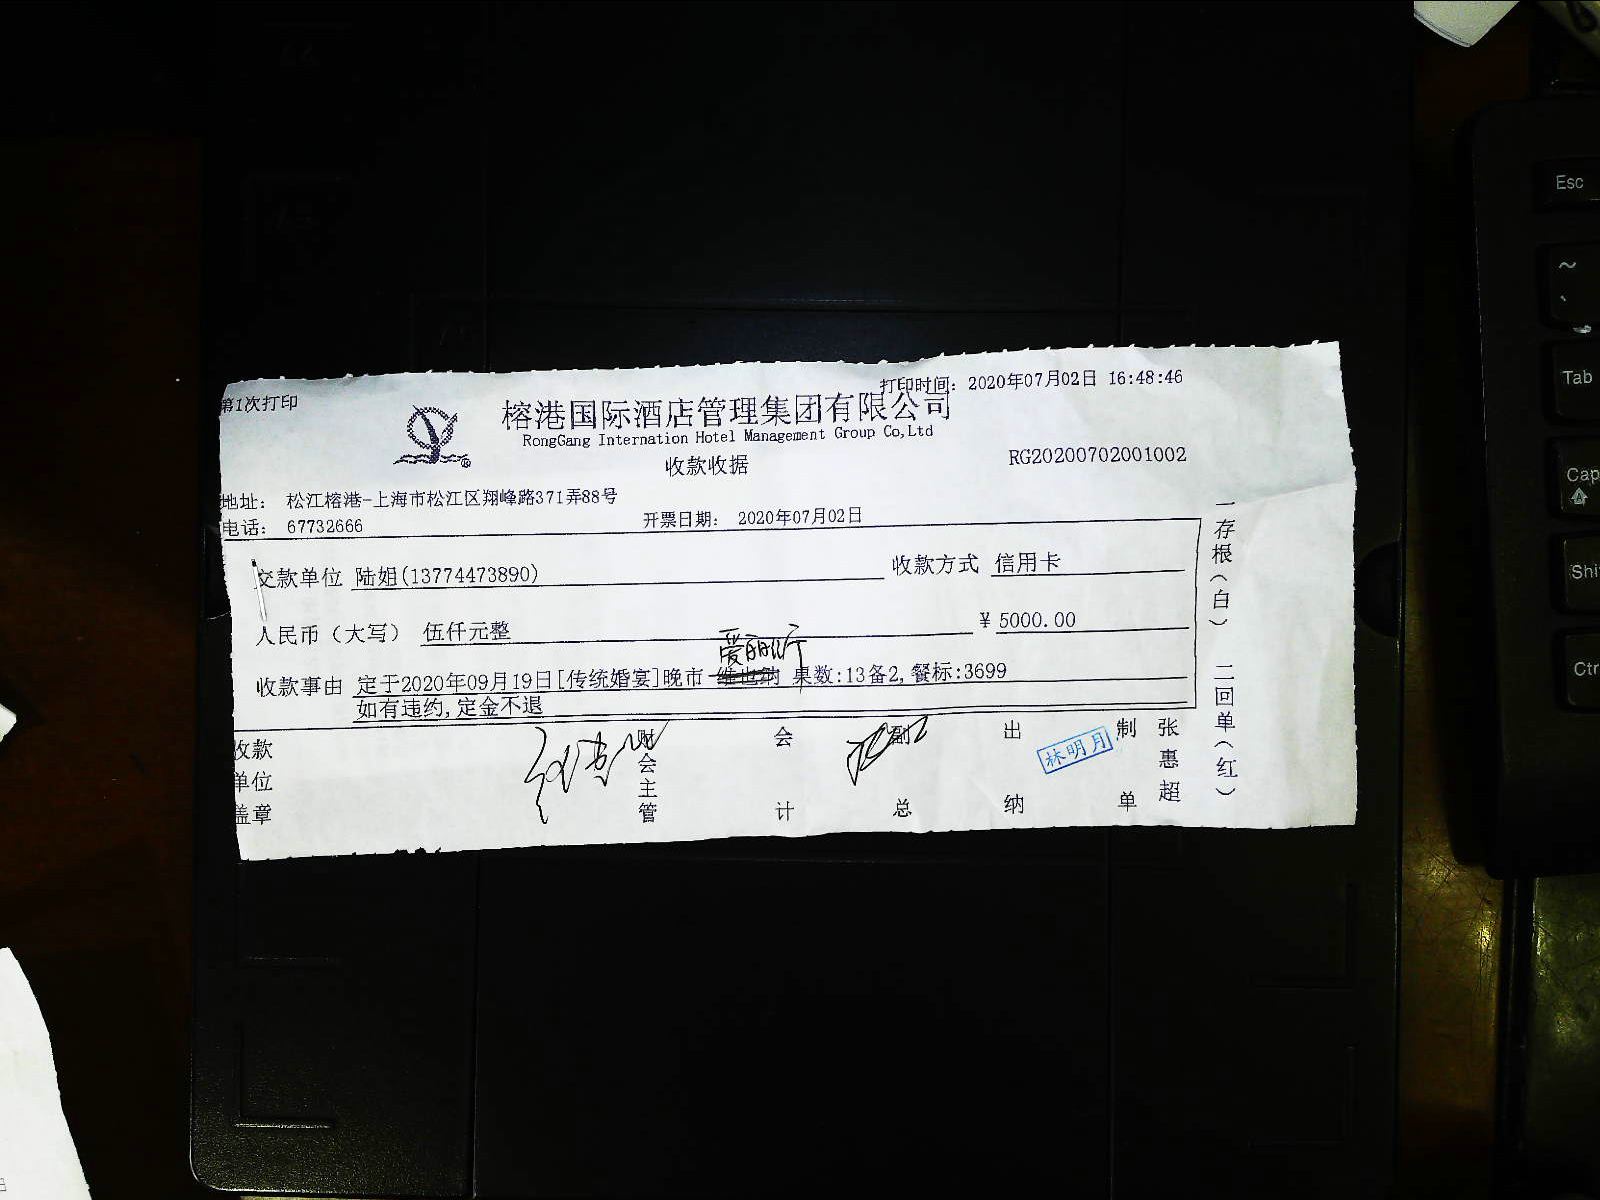 第1次打印
打印时间: 2020年07月02日 16:48:46
榕港国际酒店管理集团有限公司
RongGang Internation Hotel Management Group Co,Ltd
收款收据
RG20200702001002
地址: 松江榕港-上海市松江区翔峰路371弄88号
电话: 67732666
开票日期: 2020年07月02日
交款单位 陆姐(13774473890)
收款方式 信用卡
人民币（大写） 伍仟元整
¥ 5000.00
收款事由 定于2020年09月19日[传统婚宴]晚市 维也纳 桌数:13备2,餐标:3699
如有违约,定金不退
收款单位盖章
财会主管
会计
副总
出纳
林明月
制单
张惠超
一存根（白）
二回单（红）
Esc
~
Tab
Cap
Shi
Ctr